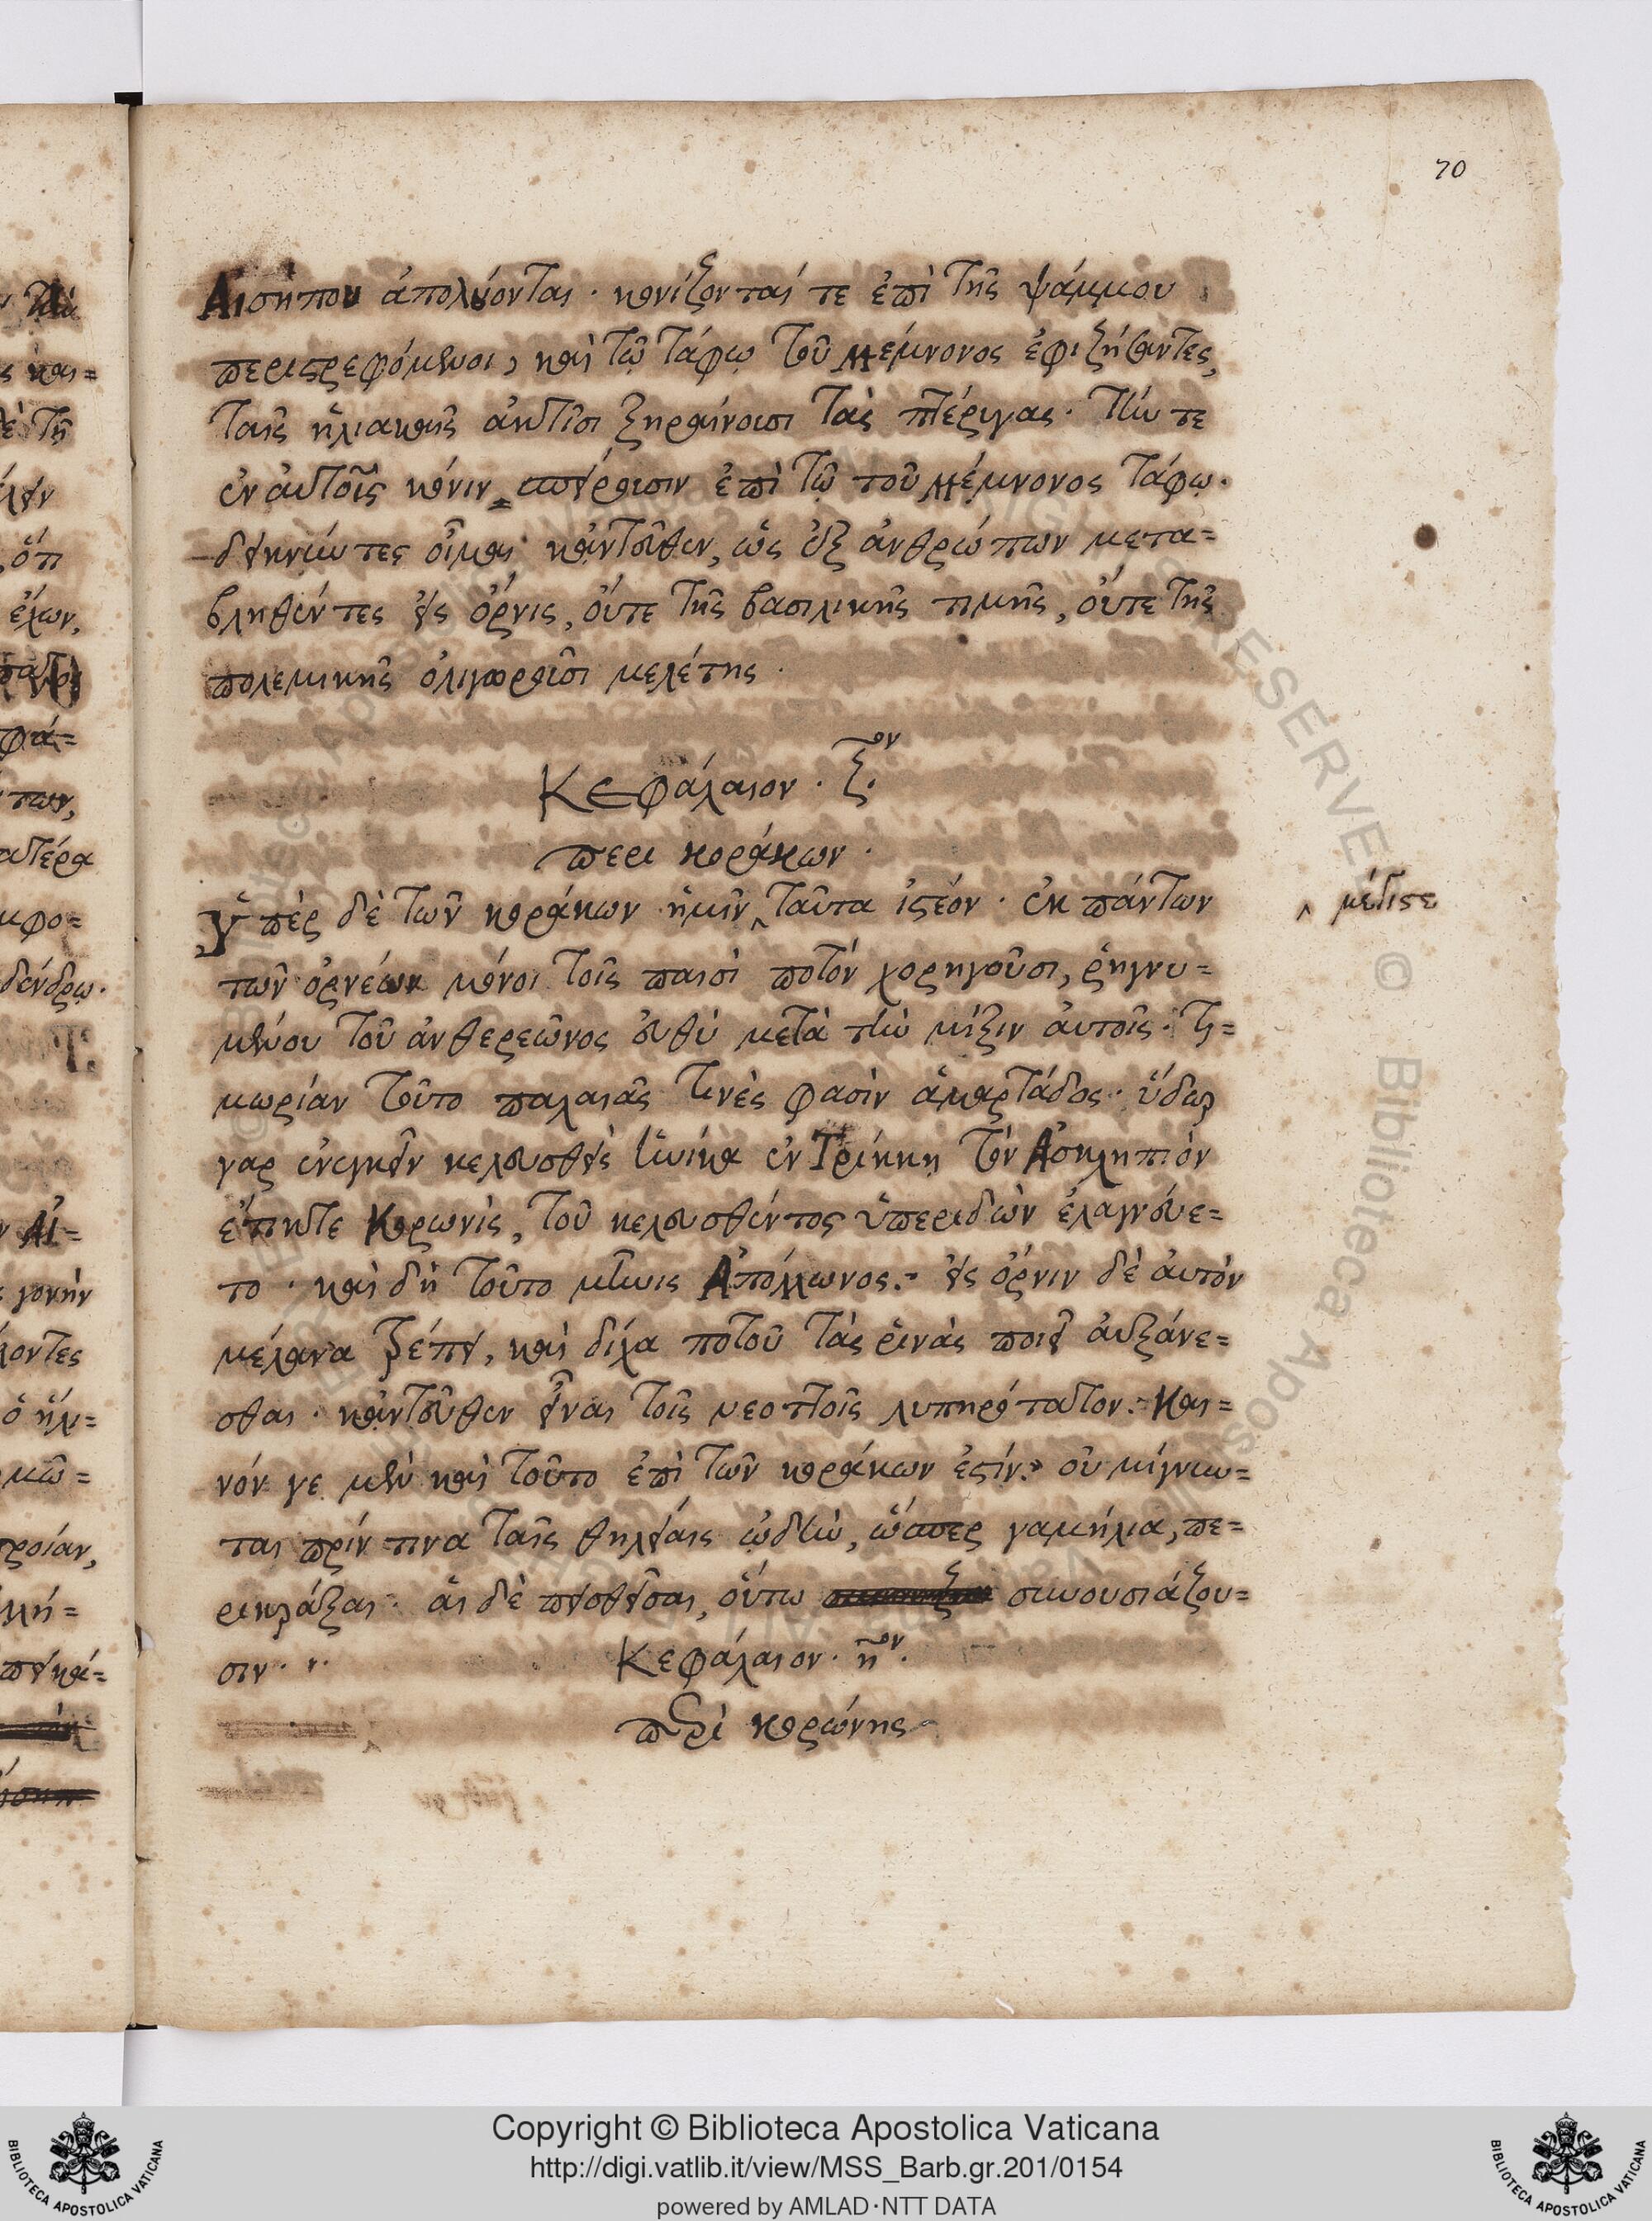 70
Αἰσήπου ἀπολύονται· κονίζονταί τε ἐπὶ τῆς ψάμμου
περιστρεφόμενοι, καὶ τῷ τάφῳ τοῦ Μέμνονος ἐφιζήσαντες,
ταῖς ἡλιακαῖς ἀκτῖσι ξηραίνουσι τὰς πτέρυγας· τήν τε
ἐν αὐτοῖς κόνιν σπείρουσιν ἐπὶ τῷ τοῦ Μέμνονος τάφῳ·
δεικνύντες οἶμαι κἀντεῦθεν, ὡς ἐξ ἀνθρώπων μετα=
βληθέντες εἰς ὄρνις, οὔτε τῆς βασιλικῆς τιμῆς, οὔτε τῆς
πολεμικῆς ὀλιγωροῦσι μελέτης·
Κεφάλαιον· ζ.ον
περι κοράκων·
Ὑπὲρ δὲ τῶν κοράκων ἡμῖν ταῦτα ἰστέον· ἐκ πάντων
μέτιστε
τῶν ὀρνέων μόνοι τοῖς παισὶ ποτὸν χορηγοῦσι, ῥηγνυ=
μένου τοῦ ἀνθερεῶνος εὐθὺ μετὰ τὴν μίξιν αὐτοῖς· τι=
μωρίαν τοῦτο παλαιᾶς τινὲς φασὶν ἁμαρτάδος· ὕδωρ
γαρ ἐνεγκεῖν κελευσθεὶς ἡνίκα ἐν Τρίκκῃ τὸν Ἀσκληπιὸν
ἔτικτε Κορωνὶς, τοῦ κελευσθέντος ὑπεριδὼν ἐλαγνεύε=
το· καὶ δὴ τοῦτο μῆνις Ἀπόλλωνος· εἰς ὄρνιν δὲ αὐτὸν
μέλανα τρέπει, καὶ δίχα ποτοῦ τὰς ῥινὰς ποιεῖ αὐξάνε=
σθαι· κἀντεῦθεν εἶναι τοῖς νεοττοῖς λυπηρότατον· Και=
νόν γε μὲν καὶ τοῦτο ἐπὶ τῶν κοράκων ἐστίν· οὐ μίγνυν=
ται πρίν τινα ταῖς θηλείαις ᾠδὴν, ὥσπερ γαμήλια, πε=
ρικράξαι· αἱ δὲ πεισθεῖσαι, οὕτω συνουσιάζου=
σιν·
Κεφάλαιον· η.ον
περὶ κορώνης
Copyright © Biblioteca Apostolica Vaticana
http://digi.vatlib.it/view/MSS_Barb.gr.201/0154
powered by AMLAD·NTT DATA
BIBLIOTECA APOSTOLICA VATICANA
BIBLIOTECA APOSTOLICA VATICANA